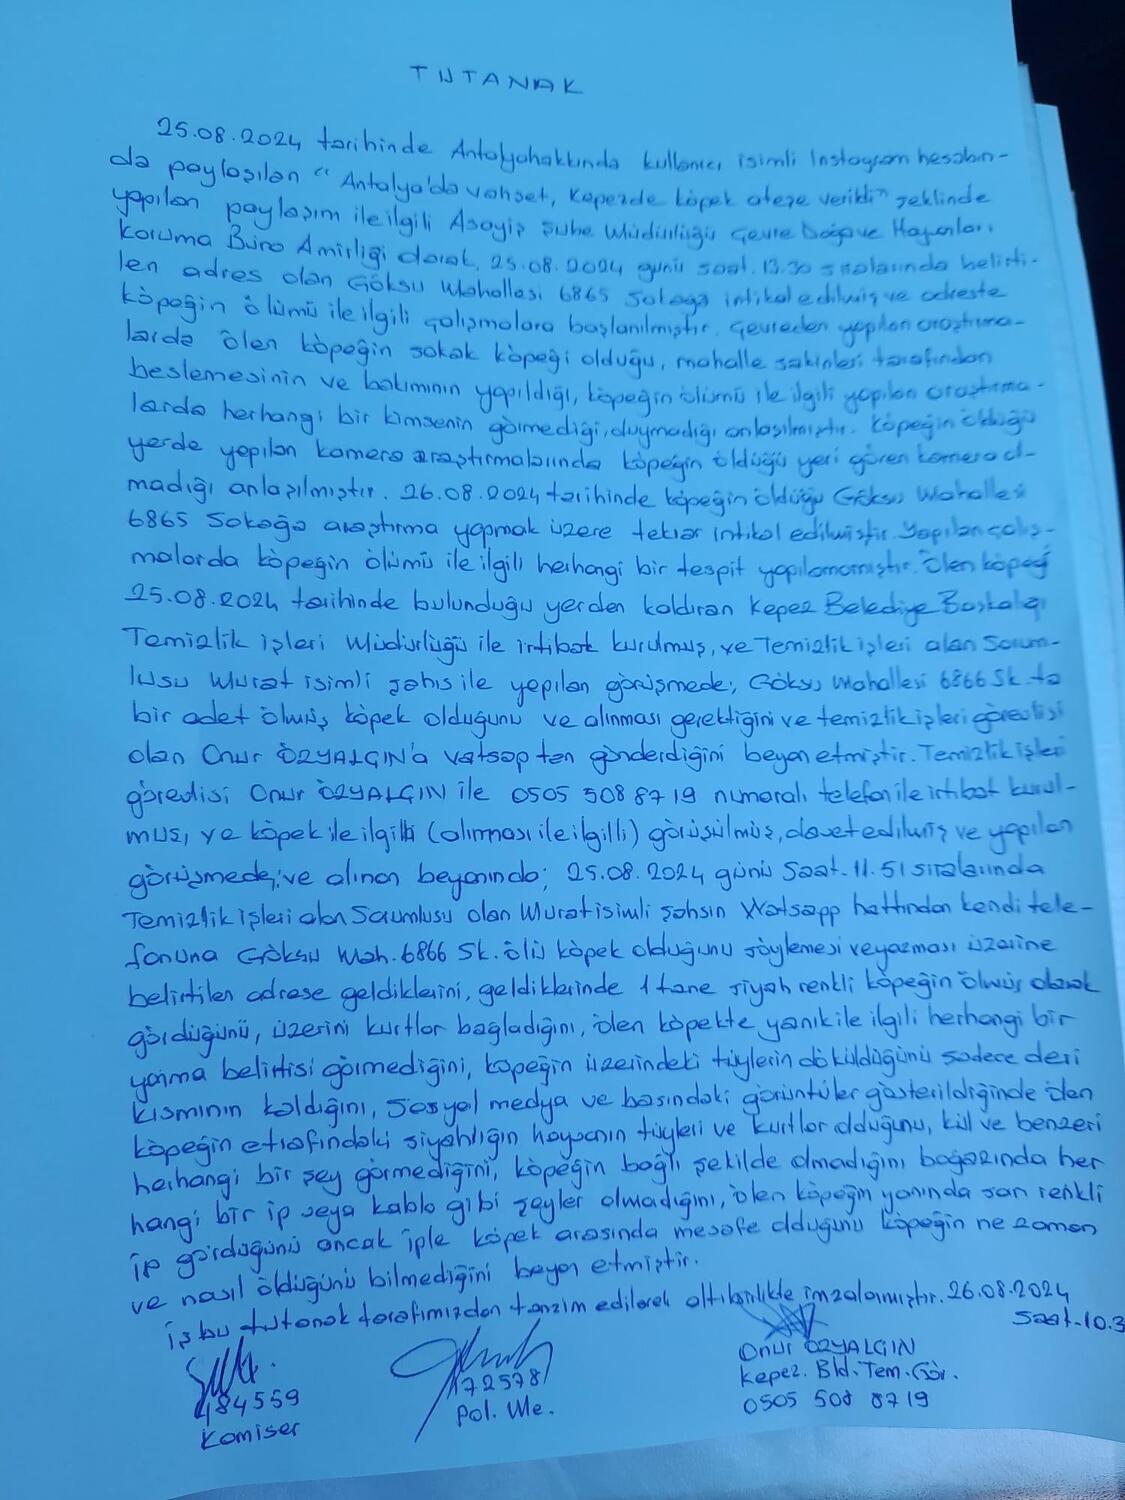 TUTANAK
25.08.2024 tarihinde Antalyahakkında kullanıcı isimli Instagram hesabın-
da paylaşılan "Antalya'da vahşet, Kepezde köpek ateşe verildi" şeklinde
yapılan paylaşım ile ilgili Asayiş Şube Müdürlüğü Çevre Doğa ve Hayvanları
Koruma Büro Amirliği olarak, 25.08.2024 günü saat. 13.30 sıralarında belirti-
len adres olan Göksu Mahallesi 6865 Sokağa intikal edilmiş ve adreste
köpeğin ölümü ile ilgili çalışmalara başlanılmıştır. Çevreden yapılan araştırma-
larda ölen köpeğin sokak köpeği olduğu, mahalle sakinleri tarafından
beslemesinin ve bakımının yapıldığı, köpeğin ölümü ile ilgili yapılan araştırma-
larda herhangi bir kimsenin görmediği, duymadığı anlaşılmıştır. Köpeğin öldüğü
yerde yapılan kamera araştırmalarında köpeğin öldüğü yeri gören kamera ol-
madığı anlaşılmıştır. 26.08.2024 tarihinde köpeğin öldüğü Göksu Mahallesi
6865 Sokağa araştırma yapmak üzere tekrar intikal edilmiştir. Yapılan çalış-
malarda köpeğin ölümü ile ilgili herhangi bir tespit yapılamamıştır. Ölen köpeği
25.08.2024 tarihinde bulunduğu yerden kaldıran Kepez Belediye Başkalığı
Temizlik işleri Müdürlüğü ile irtibat kurulmuş, ve Temizlik işleri alan Sorum-
lusu Murat isimli şahıs ile yapılan görüşmede; Göksu Mahallesi 6866 Sk. ta
bir adet ölmüş köpek olduğunu ve alınması gerektiğini ve temizlik işleri görevlisi
olan Onur ÖZYALÇIN'a vatsap ten gönderdiğini beyan etmiştir. Temizlik işleri
görevlisi Onur ÖZYALÇIN ile 0505 508 8719 numaralı telefon ile irtibat kurul-
muş, ve köpek ile ilgili (alınması ile ilgilli) görüşülmüş, davet edilmiş ve yapılan
görüşmede; ve alınan beyanında; 25.08.2024 günü Saat. 11.51 sıralarında
Temizlik işleri alan Sorumlusu olan Murat isimli şahsın Watsapp hattından kendi tele-
fonuna Göksu Mah. 6866 Sk. ölü köpek olduğunu söylemesi ve yazması üzerine
belirtilen adrese geldiklerini, geldiklerinde 1 tane siyah renkli köpeğin ölmüş olarak
gördüğünü, üzerini kurtlar bağladığını, ölen köpekte yanık ile ilgili herhangi bir
yanma belirtisi görmediğini, köpeğin üzerindeki tüylerin döküldüğünü sadece deri
kısmının kaldığını, sosyal medya ve basındaki görüntüler gösterildiğinde ölen
köpeğin etrafındaki siyahlığın hayvanın tüyleri ve kurtlar olduğunu, kül ve benzeri
herhangi bir şey görmediğini, köpeğin bağlı şekilde olmadığını boğazında her
hangi bir ip veya kablo gibi şeyler olmadığını, ölen köpeğin yanında sarı renkli
ip gördüğünü ancak iple köpek arasında mesafe olduğunu köpeğin ne zaman
ve nasıl öldüğünü bilmediğini beyan etmiştir.
İş bu tutanak tarafımızdan tanzim edilerek altı birlikte imzalanmıştır. 26.08.2024
Saat. 10.3
484559
Komiser
172578
Pol. Me.
Onur ÖZYALÇIN
Kepez. Bld. Tem. Gör.
0505 508 8719